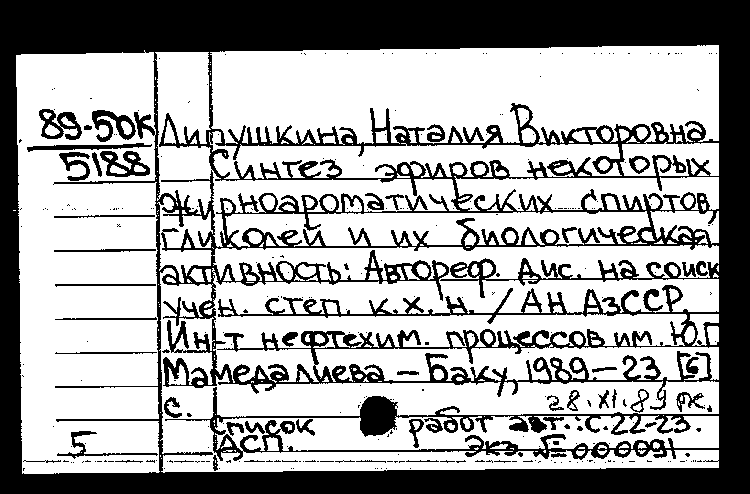 89-50К Липушкина, Наталия Викторовна.
5188 Синтез эфиров некоторых
жирноароматических спиртов,
гликолей и их биологическая
активность: Автореф. дис. на соиск
учен. степ. к.х.н. / АН АзССР,
Ин-т нефтехим. процессов им. Ю.Г.
Мамедалиева. – Баку, 1989. – 23, [6]
с. 28.XI.89 рк.
Список работ авт.: С. 22-23.
5 ДСП. Экз. № 000091.